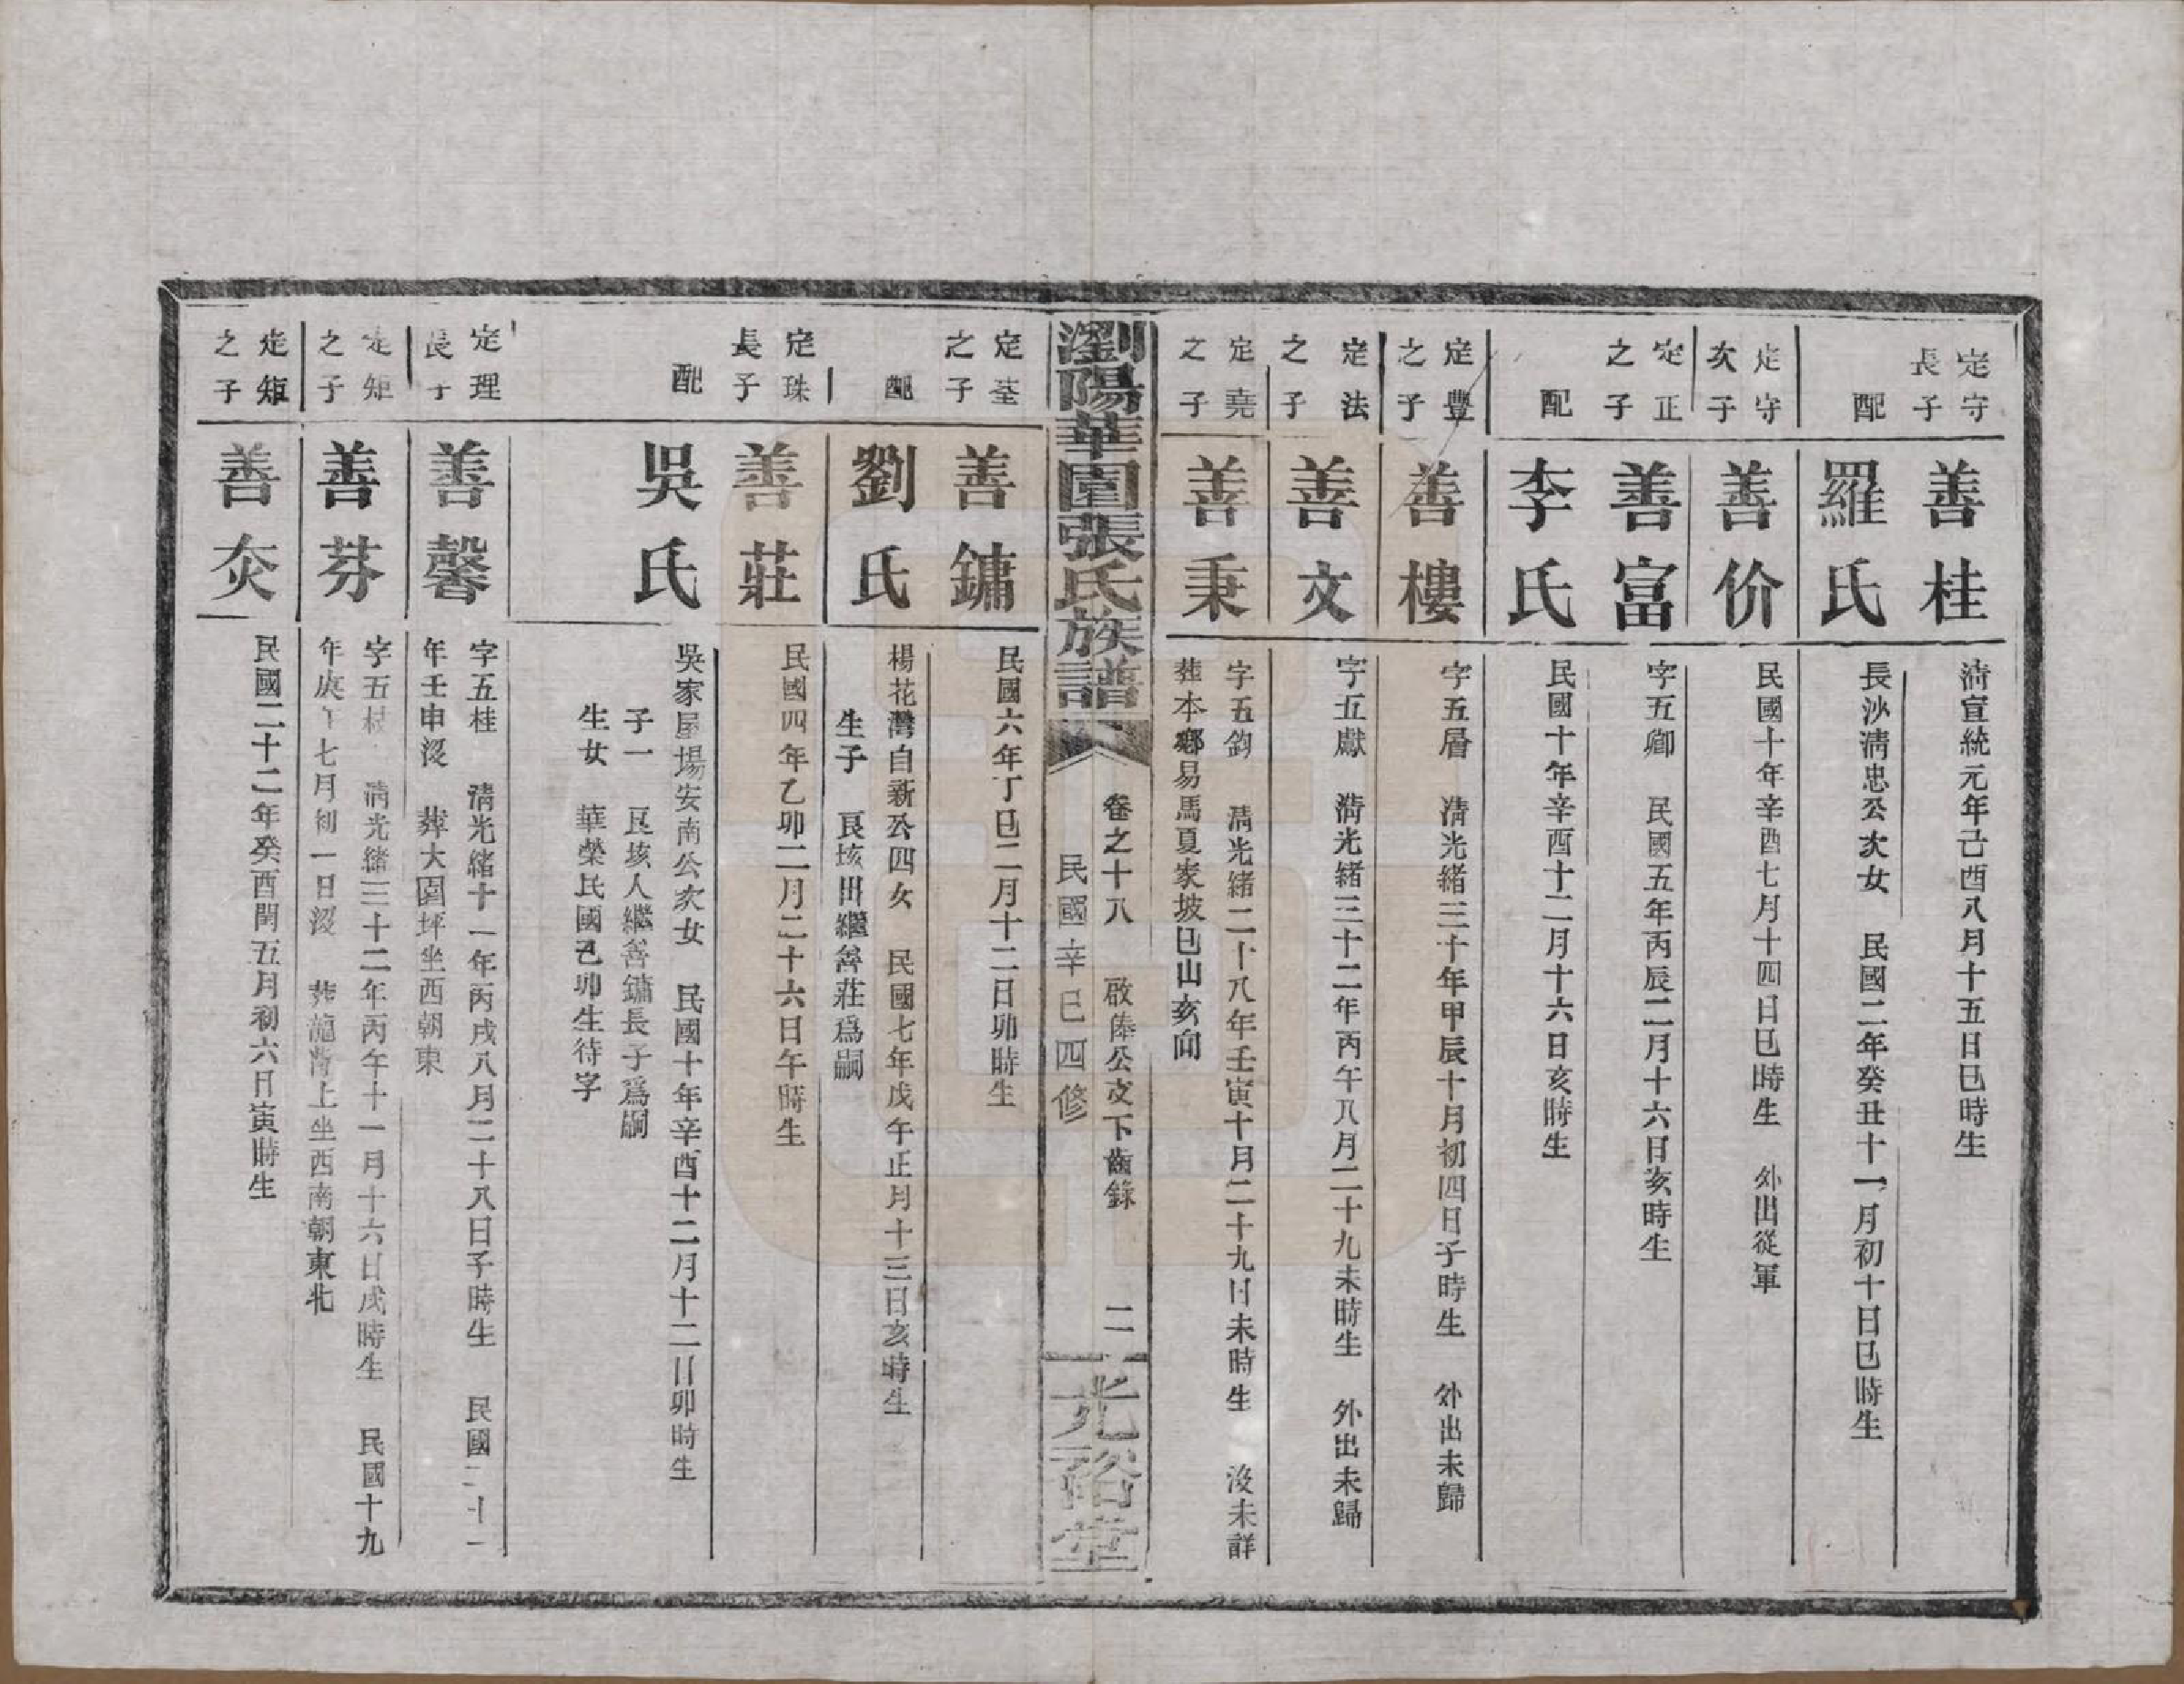 定守長子
善桂
清宣統元年己酉八月十五日巳時生
配
羅氏
長沙清忠公次女　民國二年癸丑十一月初十日巳時生
定守次子
善价
民國十年辛酉七月十四日巳時生　外出從軍
定正之子
善富
字五卿　民國五年丙辰二月十六日亥時生
配
李氏
民國十年辛酉十二月十六日亥時生
定豐之子
善樓
字五層　清光緒三十年甲辰十月初四日子時生　外出未歸
定法之子
善文
字五獻　清光緒三十二年丙午八月二十九未時生　外出未歸
定堯之子
善秉
字五鈞　清光緒二十八年壬寅十月二十九日未時生　沒未詳
葬本鄉易馬夏家坡巳山亥向
瀏陽華園張氏族譜
卷之十八　啟俸公支下齒錄　二
民國辛巳四修
光裕堂
定荃之子
善鏞
民國六年丁巳二月十二日卯時生
配
劉氏
楊花灣自新公四女　民國七年戊午正月十三日亥時生
生子　良垓出繼善莊爲嗣
定珠長子
善莊
民國四年乙卯二月二十六日午時生
配
吳氏
吳家屋場安南公次女　民國十年辛酉十二月十二日卯時生
子一　良垓人繼善鏞長子爲嗣
生女　華榮民國己卯生待字
定理長子
善馨
字五桂　清光緒十一年丙戌八月二十八日子時生　民國二十一
年壬申沒　葬大園坪坐西朝東
定矩之子
善芬
字五　清光緒三十二年丙午十一月十六日戌時生　民國十九
年庚午七月初一日沒　葬龍　上坐西南朝東北
定矩之子
善灻
民國二十二年癸酉閏五月初六日寅時生